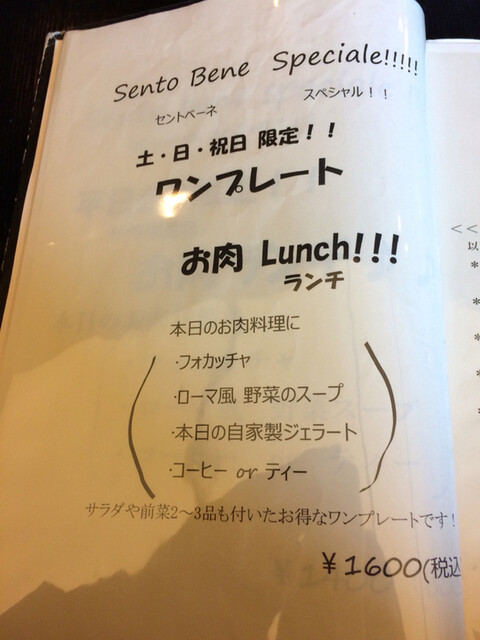 Sento Bene Speciale!!!!!
セントベーネ スペシャル！！
土・日・祝日 限定！！
ワンプレート
お肉 Lunch!!!
ランチ
本日のお肉料理に
・フォカッチャ
・ローマ風 野菜のスープ
・本日の自家製ジェラート
・コーヒー or ティー
サラダや前菜2～3品も付いたお得なワンプレートです！
￥1600(税込
<<
以
*
*
*
*
*